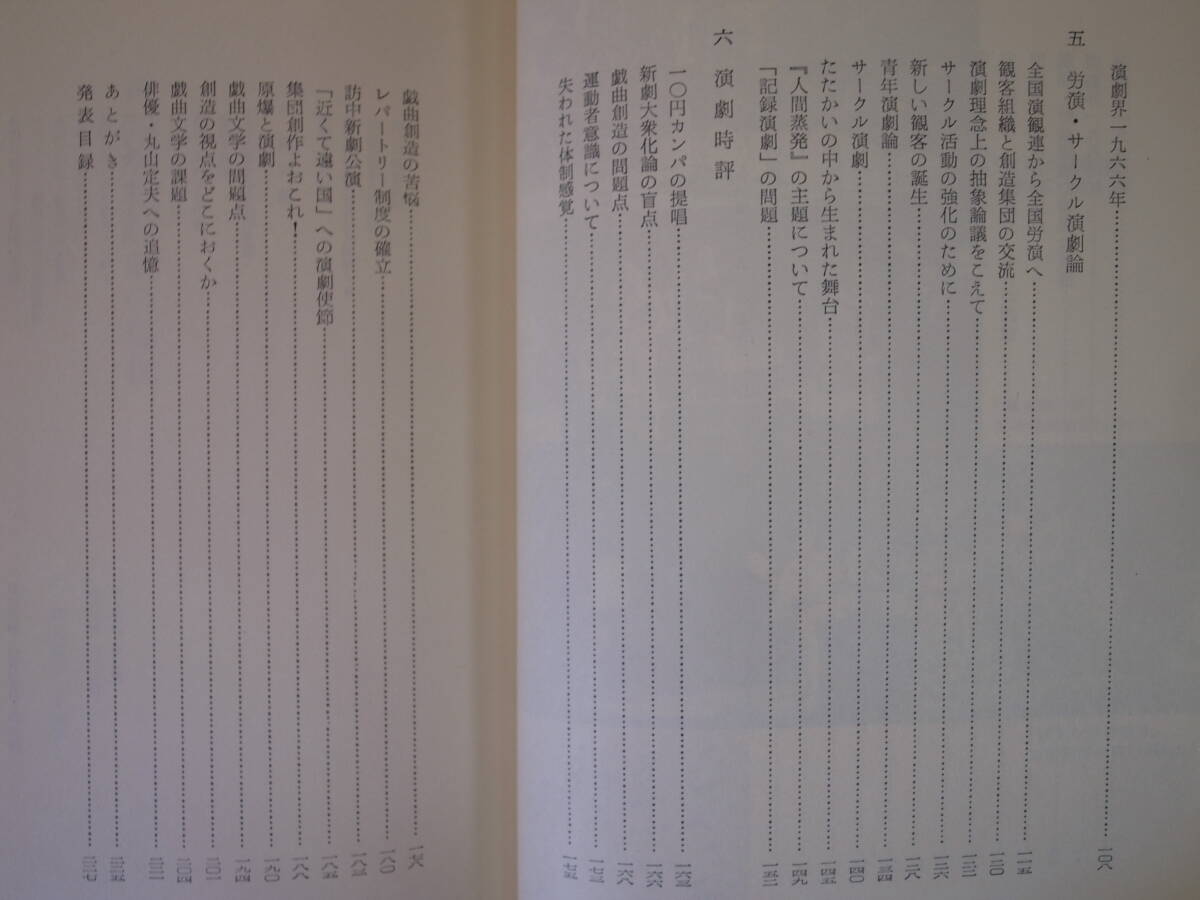 演劇界一九六六年……一〇八
五　労演・サークル演劇論
全国演観連から全国労演へ……一一五
観客組織と創造集団の交流……一二〇
演劇理念上の抽象論議をこえて……一二二
サークル活動の強化のために……一二六
新しい観客の誕生……一二八
青年演劇論……一三四
サークル演劇……一四〇
たたかいの中から生まれた舞台……一四五
『人間蒸発』の主題について……一四九
「記録演劇」の問題……一五二
六　演劇時評
一〇円カンパの提唱……一六三
新劇大衆化論の盲点……一六六
戯曲創造の問題点……一六八
運動者意識について……一七三
失われた体制感覚……一七五
戯曲創造の苦悩……一七八
レパートリー制度の確立……一八〇
訪中新劇公演……一八三
「近くて遠い国」への演劇使節……一八五
集団創作よおこれ！……一八八
原爆と演劇……一九〇
戯曲文学の問題点……一九四
創造の視点をどこにおくか……二〇一
戯曲文学の課題……二〇四
俳優・丸山定夫への追憶……二二一
あとがき……二二五
発表目録……二二七